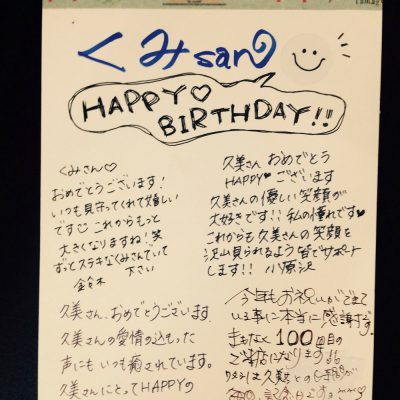 くみsan
HAPPY♡
BIRTHDAY!!
くみさん♡
おめでとうございます!
いつも見守ってくれて嬉しい
です これからもっと
大きくなりますね!笑
ずっとステキなくみさんでいて
下さい
鈴木
久美さん おめでとう
HAPPY♥ ございます
久美さんの優しい笑顔が
大好きです!!私の憧れです♥
これからも久美さんの笑顔を
沢山見られるよう皆でサポート
します!! 小原沢
久美さん、おめでとうございます。
久美さんの愛情の込もった
声にもいつも癒されています。
久美さんにとってHAPPYの
今年もお祝いができて
いる事に本当に感謝です。
まもなく100回目の